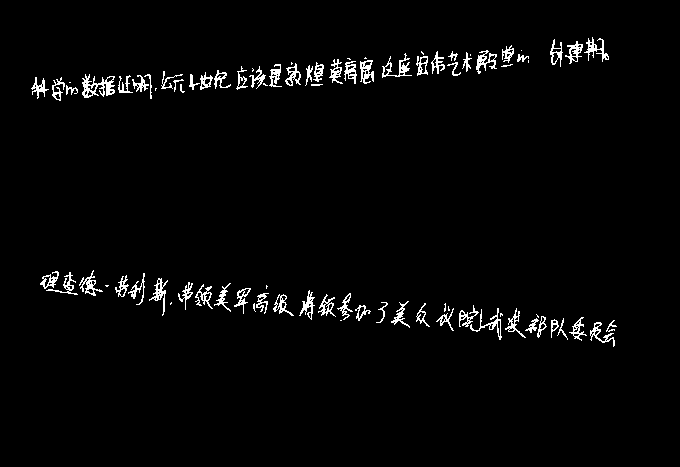 科学的数据证明,公元4世纪应该是敦煌莫高窟这座宏伟艺术殿堂的创建期。
理查德·劳利斯,带领美军高级将领参加了美众议院武装部队委员会